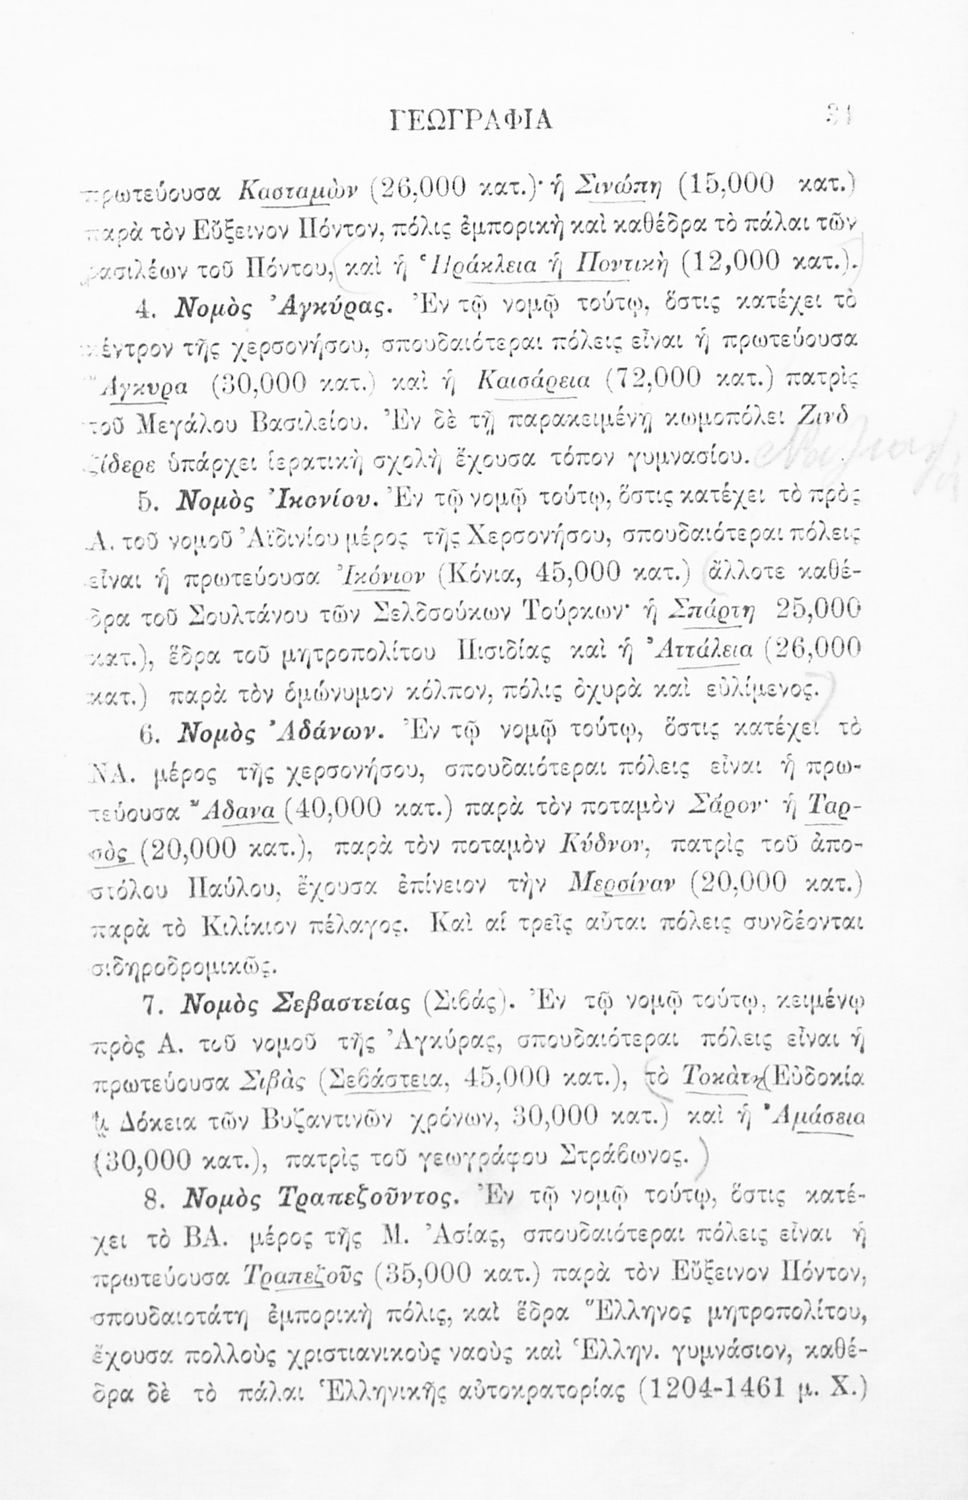 ΓΕΩΓΡΑΦΙΑ 31
πρωτεύουσα Κασταμὼν (26,000 κατ.)· ἡ Σινώπη (15,000 κατ.)
παρὰ τὸν Εὔξεινον Πόντον, πόλις ἐμπορικὴ καὶ καθέδρα τὸ πάλαι τῶν
βασιλέων τοῦ Πόντου, καὶ ἡ Ἡράκλεια ἡ Ποντικὴ (12,000 κατ.).
4. Νομὸς Ἀγκύρας. Ἐν τῷ νομῷ τούτῳ, ὅστις κατέχει τὸ
κέντρον τῆς χερσονήσου, σπουδαιότεραι πόλεις εἶναι ἡ πρωτεύουσα
Ἄγκυρα (30,000 κατ.) καὶ ἡ Καισάρεια (72,000 κατ.) πατρὶς
τοῦ Μεγάλου Βασιλείου. Ἐν δὲ τῇ παρακειμένῃ κωμοπόλει Ζινδ
ζίδερε ὑπάρχει ἱερατικὴ σχολὴ ἔχουσα τόπον γυμνασίου.
5. Νομὸς Ἰκονίου. Ἐν τῷ νομῷ τούτῳ, ὅστις κατέχει τὸ πρὸς
Α. τοῦ νομοῦ Ἀϊδινίου μέρος τῆς Χερσονήσου, σπουδαιότεραι πόλεις
εἶναι ἡ πρωτεύουσα Ἰκόνιον (Κόνια, 45,000 κατ.) ἄλλοτε καθέ-
δρα τοῦ Σουλτάνου τῶν Σελδσούκων Τούρκων· ἡ Σπάρτη 25,000
κατ.), ἕδρα τοῦ μητροπολίτου Πισιδίας καὶ ἡ Ἀττάλεια (26,000
κατ.) παρὰ τὸν ὁμώνυμον κόλπον, πόλις ὀχυρὰ καὶ εὐλίμενος.
6. Νομὸς Ἀδάνων. Ἐν τῷ νομῷ τούτῳ, ὅστις κατέχει τὸ
ΝΑ. μέρος τῆς χερσονήσου, σπουδαιότεραι πόλεις εἶναι ἡ πρω-
τεύουσα Ἄδανα (40,000 κατ.) παρὰ τὸν ποταμὸν Σάρον· ἡ Ταρ-
σὸς (20,000 κατ.), παρὰ τὸν ποταμὸν Κύδνον, πατρὶς τοῦ ἀπο-
στόλου Παύλου, ἔχουσα ἐπίνειον τὴν Μερσίναν (20,000 κατ.)
παρὰ τὸ Κιλίκιον πέλαγος. Καὶ αἱ τρεῖς αὗται πόλεις συνδέονται
σιδηροδρομικῶς.
7. Νομὸς Σεβαστείας (Σιβάς). Ἐν τῷ νομῷ τούτῳ, κειμένῳ
πρὸς Α. τοῦ νομοῦ τῆς Ἀγκύρας, σπουδαιότεραι πόλεις εἶναι ἡ
πρωτεύουσα Σιβὰς (Σεβάστεια, 45,000 κατ.), τὸ Τοκὰτ (Εὐδοκία
ἢ Δόκεια τῶν Βυζαντινῶν χρόνων, 30,000 κατ.) καὶ ἡ Ἀμάσεια
(30,000 κατ.), πατρὶς τοῦ γεωγράφου Στράβωνος.
8. Νομὸς Τραπεζοῦντος. Ἐν τῷ νομῷ τούτῳ, ὅστις κατέ-
χει τὸ ΒΑ. μέρος τῆς Μ. Ἀσίας, σπουδαιότεραι πόλεις εἶναι ἡ
πρωτεύουσα Τραπεζοῦς (35,000 κατ.) παρὰ τὸν Εὔξεινον Πόντον,
σπουδαιοτάτη ἐμπορικὴ πόλις, καὶ ἕδρα Ἕλληνος μητροπολίτου,
ἔχουσα πολλοὺς χριστιανικοὺς ναοὺς καὶ Ἑλλην. γυμνάσιον, καθέ-
δρα δὲ τὸ πάλαι Ἑλληνικῆς αὐτοκρατορίας (1204-1461 μ. Χ.)